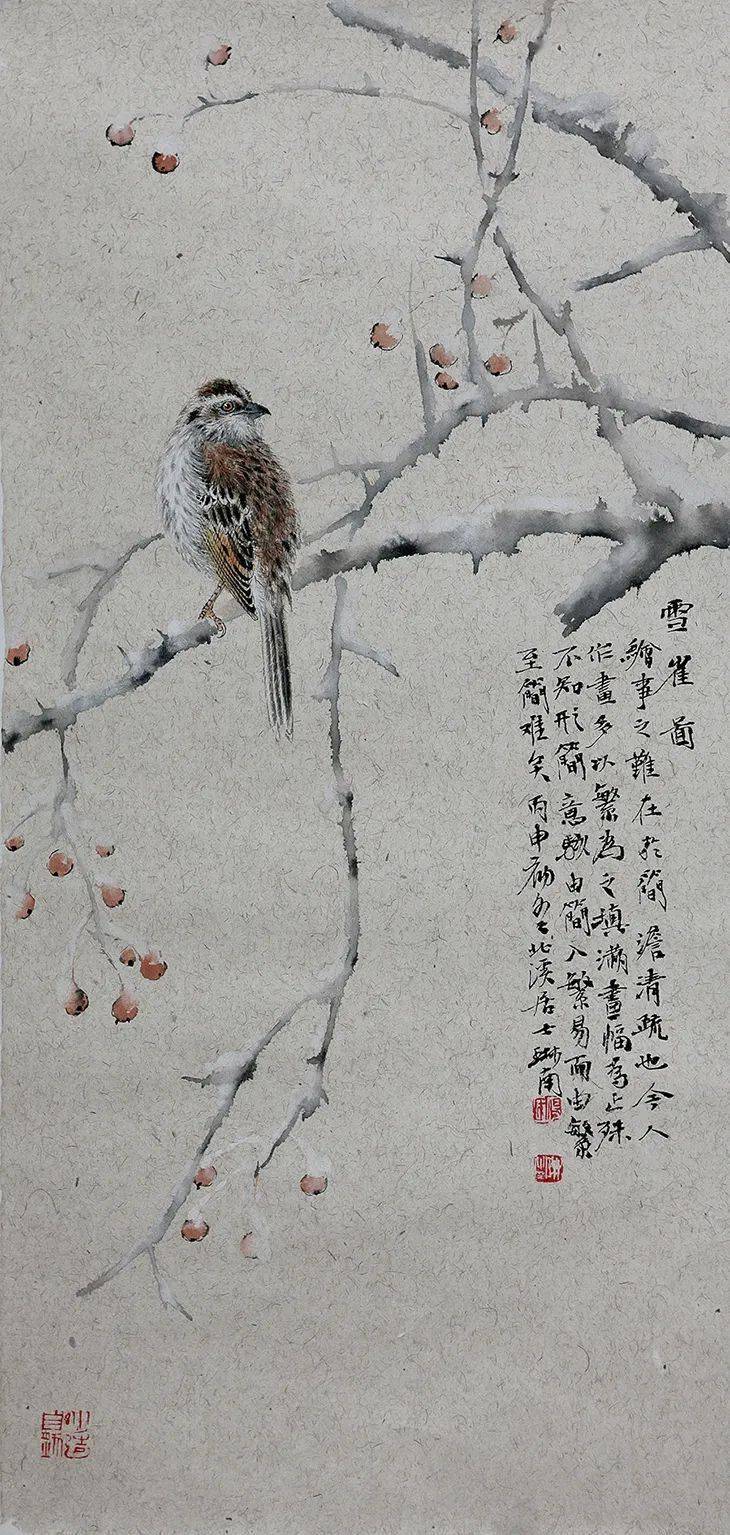 雪雀图
繪事之難在於簡澹清疏也今人
作畫多以繁為之填滿畫幅為止殊
不知形簡意賅由簡入繁易而由繁
至簡难矣丙申初冬北溪居士琳南